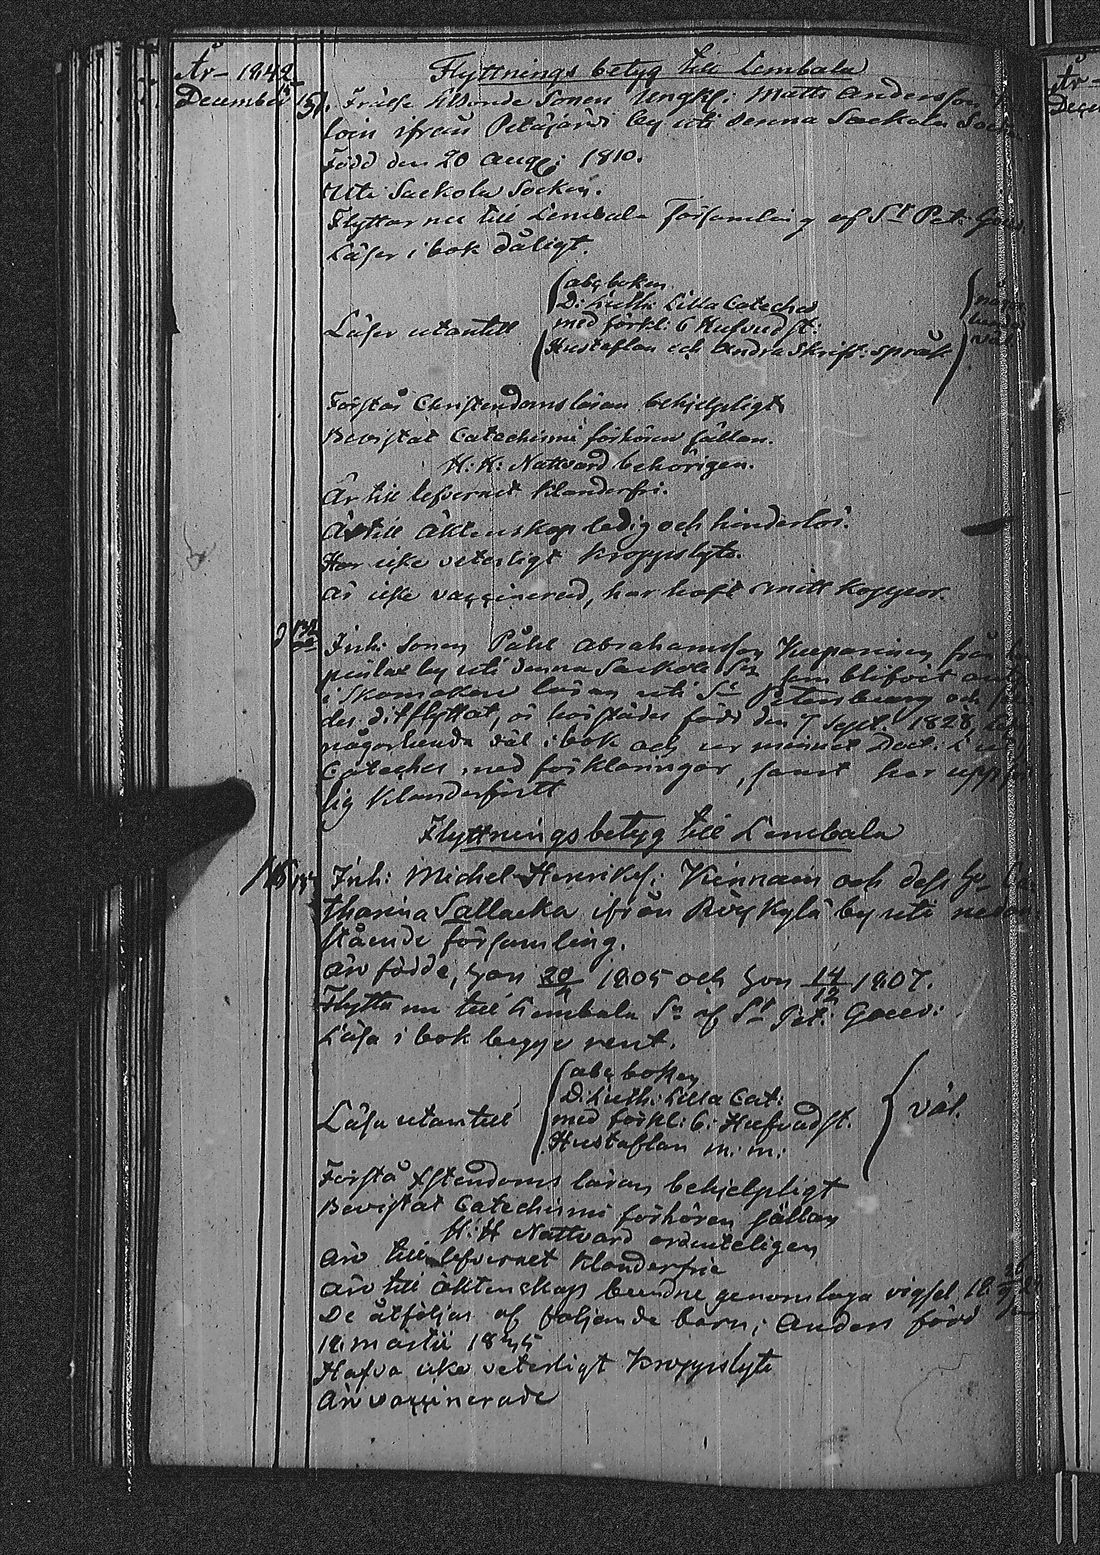 År 1842 Flyttnings betyg till Lembala
December 15 Frälse Bonde Sonen Ungk: Matts Andersson
ifrån Petäjärvi by uti denna Sackola
Född den 20 Aug: 1810.
Uti Sackola Socken.
Flyttar nu till Lembala Församling af St Pet: Gouv.
Läser i bok dåligt.
abc boken
D: Luth: Lilla Cateches
Läser utantill med förkl: 6 Hufvudst: väl
Hustaflan och Andra Skrift: språk
Förstår Christendomsläran behjelpligt
Bevistat Catechismi förhören sällan.
H: H: Nattvard behörigen.
Är till lefvernet klanderfri.
Är till Äktenskap ledig och hinderlös.
Har icke veterligt kroppslyte.
Är icke vaccinerad, har haft koppor.
Inh: Sonen Påhl Abrahamsson från
by uti denna Sackola Sn som blifvit
i Skomakare läran uti St Petersburg och
ditflyttat, är härstädes född den 7 Sept. 1828,
någorlunda väl i bok och ur minnet Doct: L
Cateches med förklaringar, samt har
sig klanderfritt
Flyttningsbetyg till Lembala
Inh: Michel Henrikss: Kinnain och dess hu Ca
tharina Sallaska ifrån by uti nedan
stående församling.
Äro födde, han 20/ 1805 och hon 14/12 1807.
Flytta nu till Lembala Sn af St Pet: Gouv:
Läsa i bok begge rent.
abc boken
D: Luth: Lilla Cat:
Läsa utantill med förkl: 6: Hufvudst. väl.
Hustaflan m: m:
Förstå Xstendoms läran behjelpligt
Bevistat Catechismi förhören sällan
H: H Nattvard ordenteligen
Äro till lefvernet klanderfrie
Äro till äktenskap bundne genom laga vigsel
De åtföljas af följande barn; Anders född
12 martii 1835
Hafva icke veterligt kroppslyte
Äro vaccinerade